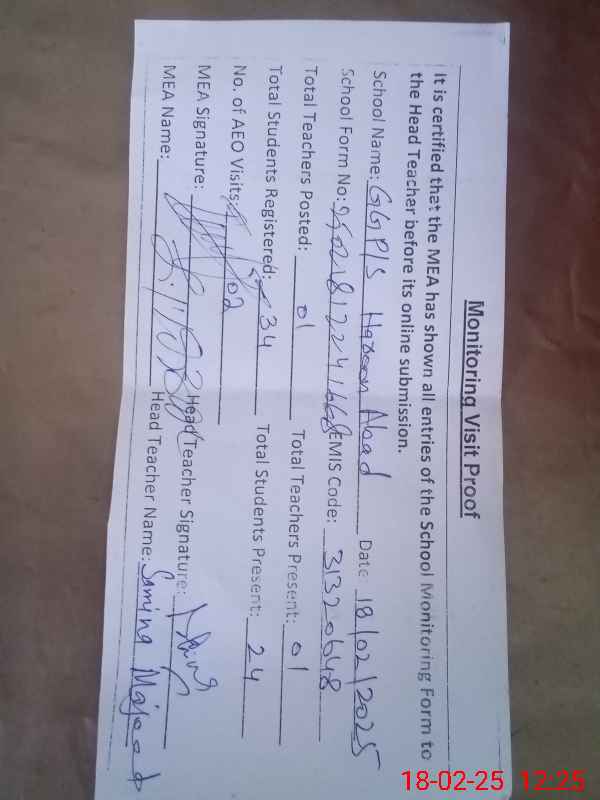 Monitoring Visit Proof
It is certified that the MEA has shown all entries of the School Monitoring Form to
the Head Teacher before its online submission.
School Name: GGP/S Haroon Abad Date 18/02/2025
School Form No: EMIS Code: 31320648
Total Teachers Posted: 01 Total Teachers Present: 01
Total Students Registered: 34 Total Students Present: 24
No. of AEO Visits: 02
MEA Signature: Head Teacher Signature:
MEA Name: Head Teacher Name: Samina Majeed
18-02-25 12:25